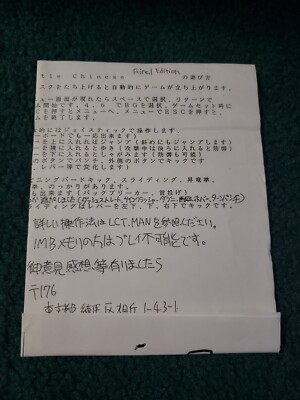 tle Chinese Fixed Edition の遊び方
スクをたち上げると自動的にゲームが立ち上がります。
ュー画面が現れたらスペースで選択、リターンで
開始です。4、6、でBGを選択、ゲームセット時に
と押すとメニューへ、メニューでESCを押すと、
ムを終了します。
的にはジョイスティックで操作します。
ボードでも一応出来ます)
ーを上に入れればジャンプ(斜めにもジャンプします)
ーを横に入れると歩き(攻撃中は後ろに入れると防御)
ーを下に入れるとしゃがみます(防御も可能)
のボタンでパンチ、外側のボタンでキックです
、レバー等で変化します)
ニングバードキック、スライディング、昇竜拳、
拳、のっかりがあります。
出来ます(バックブリーカー、首投げ)
イディングはレバーを左下、下、右下でキックです。
詳しい操作法はLCT.MANを参照ください。
1MBメモリの方はプレイ不可能です。
御意見、感想、等有りましたら
〒176
東京都 練馬区 1-43-1